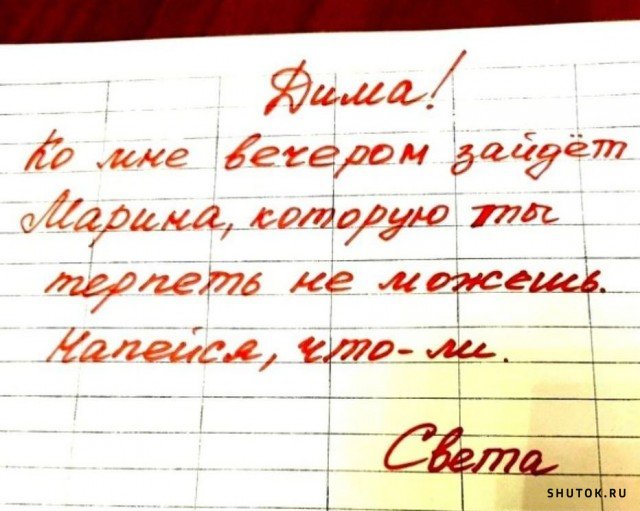 Дима!
Ко мне вечером зайдёт
Марина, которую ты
терпеть не можешь.
Напейся, что-ли.
Света
SHUTOK.RU